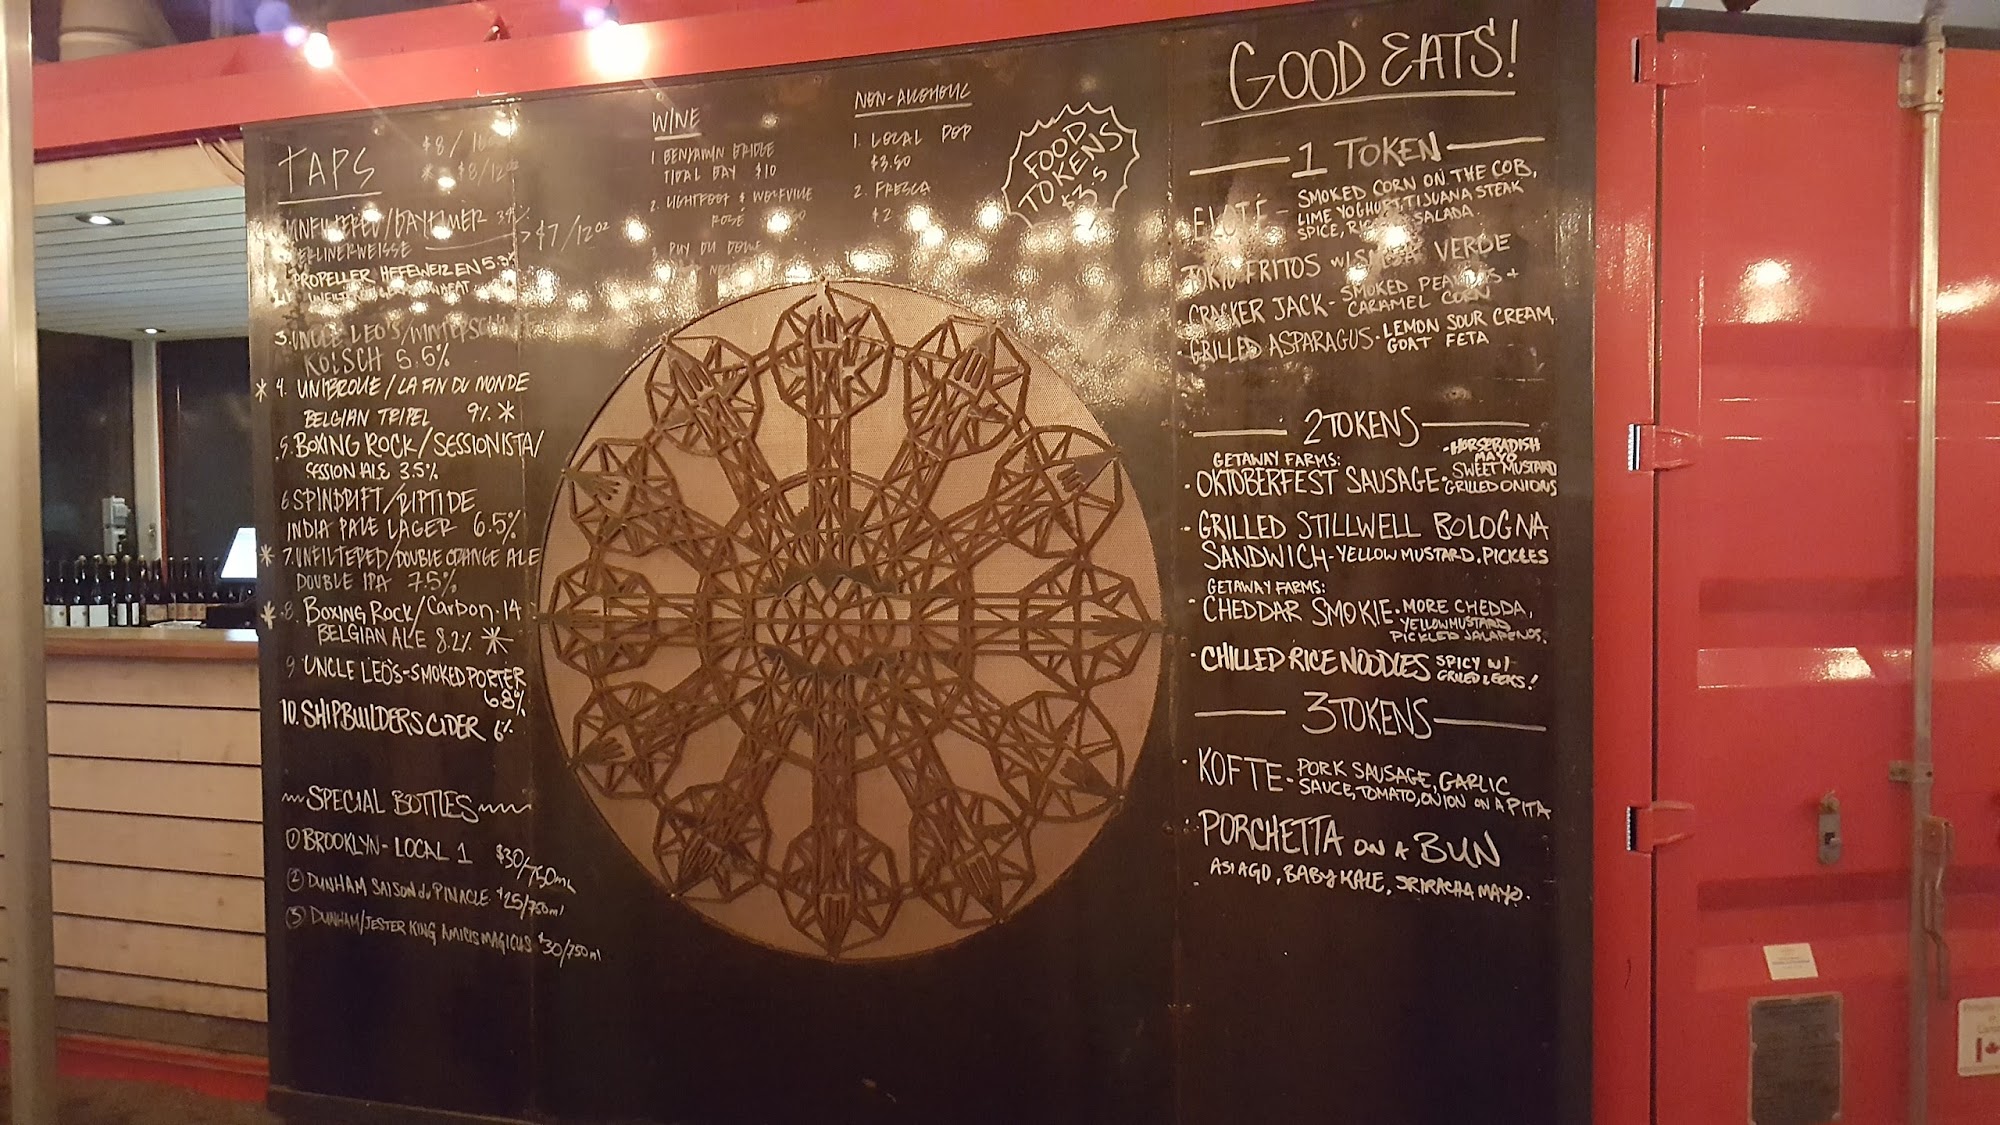 TAPS
$8/16oz
* $8/12oz
UNFILTERED/DAYTIMER
BERLINERWEISSE
>$7/12oz
PROPELLER HEFEWEIZEN 5.
3. UNCLE LEO'S/
KÖLSCH 5.5%
* 4. UNIBROUE/LA FIN DU MONDE
BELGIAN TRIPEL 9% *
5. BOXING ROCK/SESSIONISTA/
SESSION ALE 3.5%
6 SPINDRIFT/RIPTIDE
INDIA PALE LAGER 6.5%
* 7. UNFILTERED/DOUBLE ORANGE ALE
DOUBLE IPA 7.5%
* 8. BOXING ROCK/CARBON.14
BELGIAN ALE 8.2% *
9 UNCLE LEO'S-SMOKED PORTER
6.8%
10. SHIPBUILDERS CIDER 6%
SPECIAL BOTTLES
① BROOKLYN- LOCAL 1 $30/750mL
② DUNHAM SAISON du PINACLE $25/750ml
③ DUNHAM/JESTER KING AMICIS MAGICUS $30/750ml
WINE
1 BENJAMIN BRIDGE
TIDAL BAY $10
2. LIGHTFOOT & WOLFVILLE
ROSÉ
3. PUY DU DOME
NON-ALCOHOLIC
1. LOCAL POP
$3.50
2. FRESCA
$2
FOOD
TOKENS
$3.5
GOOD EATS!
1 TOKEN
ELOTE - SMOKED CORN ON THE COB,
LIME YOGHURT, TIJUANA STEAK
SPICE, SALADA
FRITOS w/ SALSA VERDE
CRACKER JACK - SMOKED PEANUTS +
CARAMEL CORN
· GRILLED ASPARAGUS · LEMON SOUR CREAM,
GOAT FETA
2 TOKENS
GETAWAY FARMS:
· OKTOBERFEST SAUSAGE · HORSERADISH
MAYO
SWEET MUSTARD
GRILLED ONIONS
· GRILLED STILLWELL BOLOGNA
SANDWICH - YELLOW MUSTARD. PICKLES
GETAWAY FARMS:
· CHEDDAR SMOKIE · MORE CHEDDA,
YELLOW MUSTARD
PICKLED JALAPENOS.
· CHILLED RICE NOODLES SPICY W/
GRILLED LEEKS!
3 TOKENS
· KOFTE - PORK SAUSAGE, GARLIC
SAUCE, TOMATO, ONION ON A PITA
· PORCHETTA ON A BUN
ASIAGO, BABY KALE, SRIRACHA MAYO.